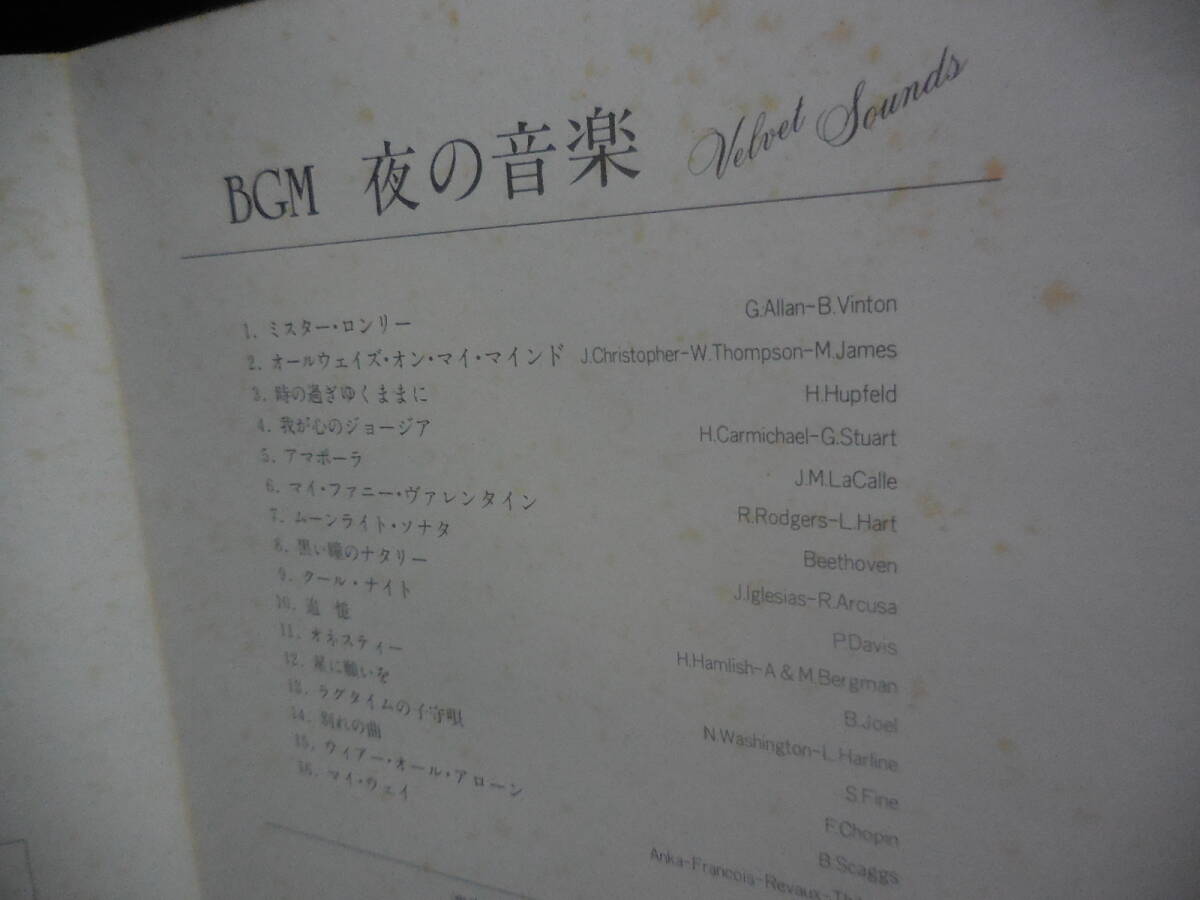 BGM 夜の音楽 Velvet Sounds
1. ミスター・ロンリー G.Allan-B.Vinton
2. オールウェイズ・オン・マイ・マインド J.Christopher-W.Thompson-M.James
3. 時の過ぎゆくままに H.Hupfeld
4. 我が心のジョージア H.Carmichael-G.Stuart
5. アマポーラ J.M.LaCalle
6. マイ・ファニー・ヴァレンタイン R.Rodgers-L.Hart
7. ムーンライト・ソナタ Beethoven
8. 黒い瞳のナタリー J.Iglesias-R.Arcusa
9. クール・ナイト P.Davis
10. 追憶 H.Hamlish-A & M.Bergman
11. オネスティー B.Joel
12. 星に願いを N.Washington-L.Harline
13. ラグタイムの子守唄 S.Fine
14. 別れの曲 F.Chopin
15. ウィアー・オール・アローン B.Scaggs
16. マイ・ウェイ Anka-Francois-Revaux-